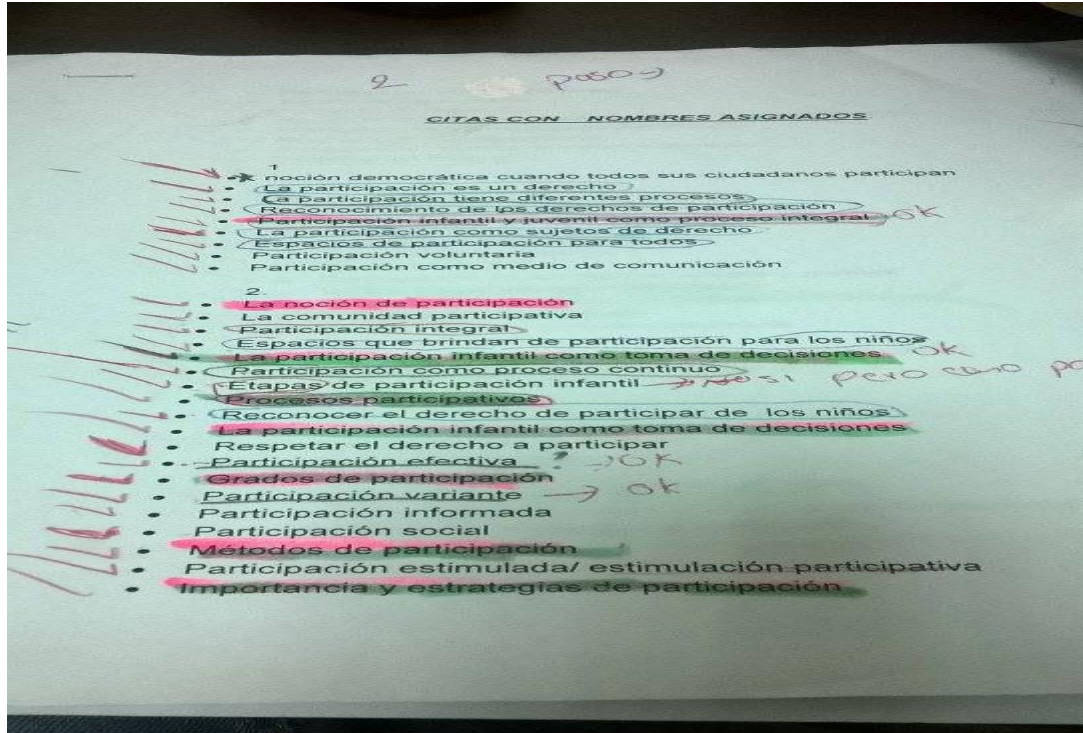 2 paso
CITAS CON NOMBRES ASIGNADOS
1
noción democrática cuando todos sus ciudadanos participan
La participación es un derecho
La participación tiene diferentes procesos
Reconocimiento de los derechos de participación
Participación infantil y juvenil como proceso integral OK
La participación como sujetos de derecho
Espacios de participación para todos
Participación voluntaria
Participación como medio de comunicación
2.
La noción de participación
La comunidad participativa
Participación integral
Espacios que brindan de participación para los niños
La participación infantil como toma de decisiones OK
Participación como proceso continuo
Etapas de participación infantil si pero como
Procesos participativos
Reconocer el derecho de participar de los niños
La participación infantil como toma de decisiones
Respetar el derecho a participar
Participación efectiva ? → OK
Grados de participación
Participación variante → OK
Participación informada
Participación social
Métodos de participación
Participación estimulada/ estimulación participativa
Importancia y estrategias de participación